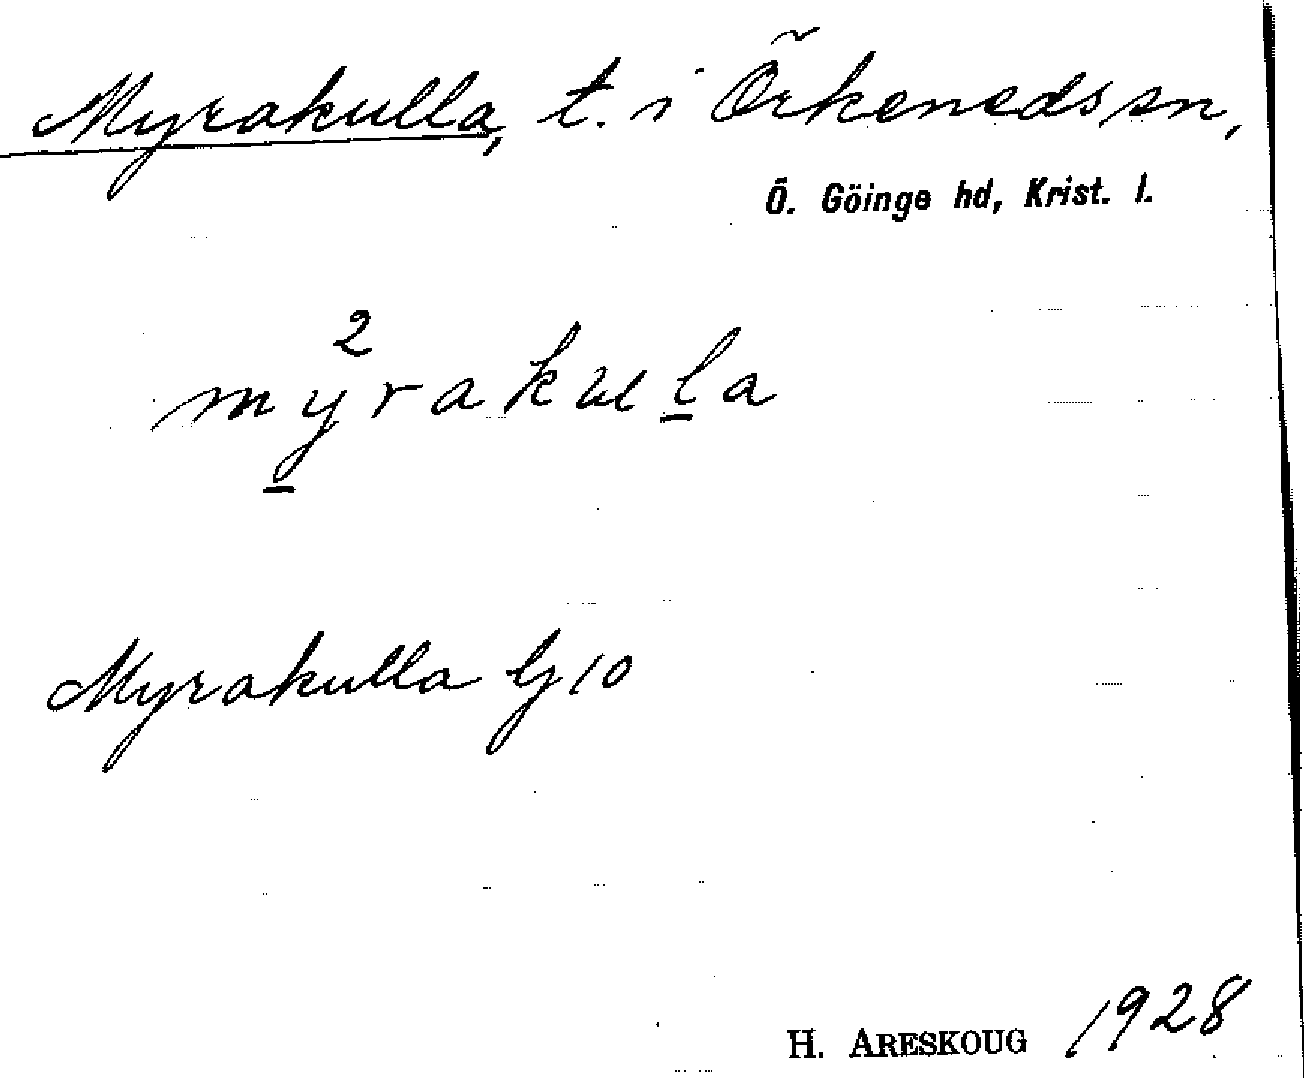 Myrakulla, t. i Örkeneds sn,
Ö. Göinge hd, Krist. l.
2
myrakula
Myrakulla Gj 10
H. ARESKOUG 1928